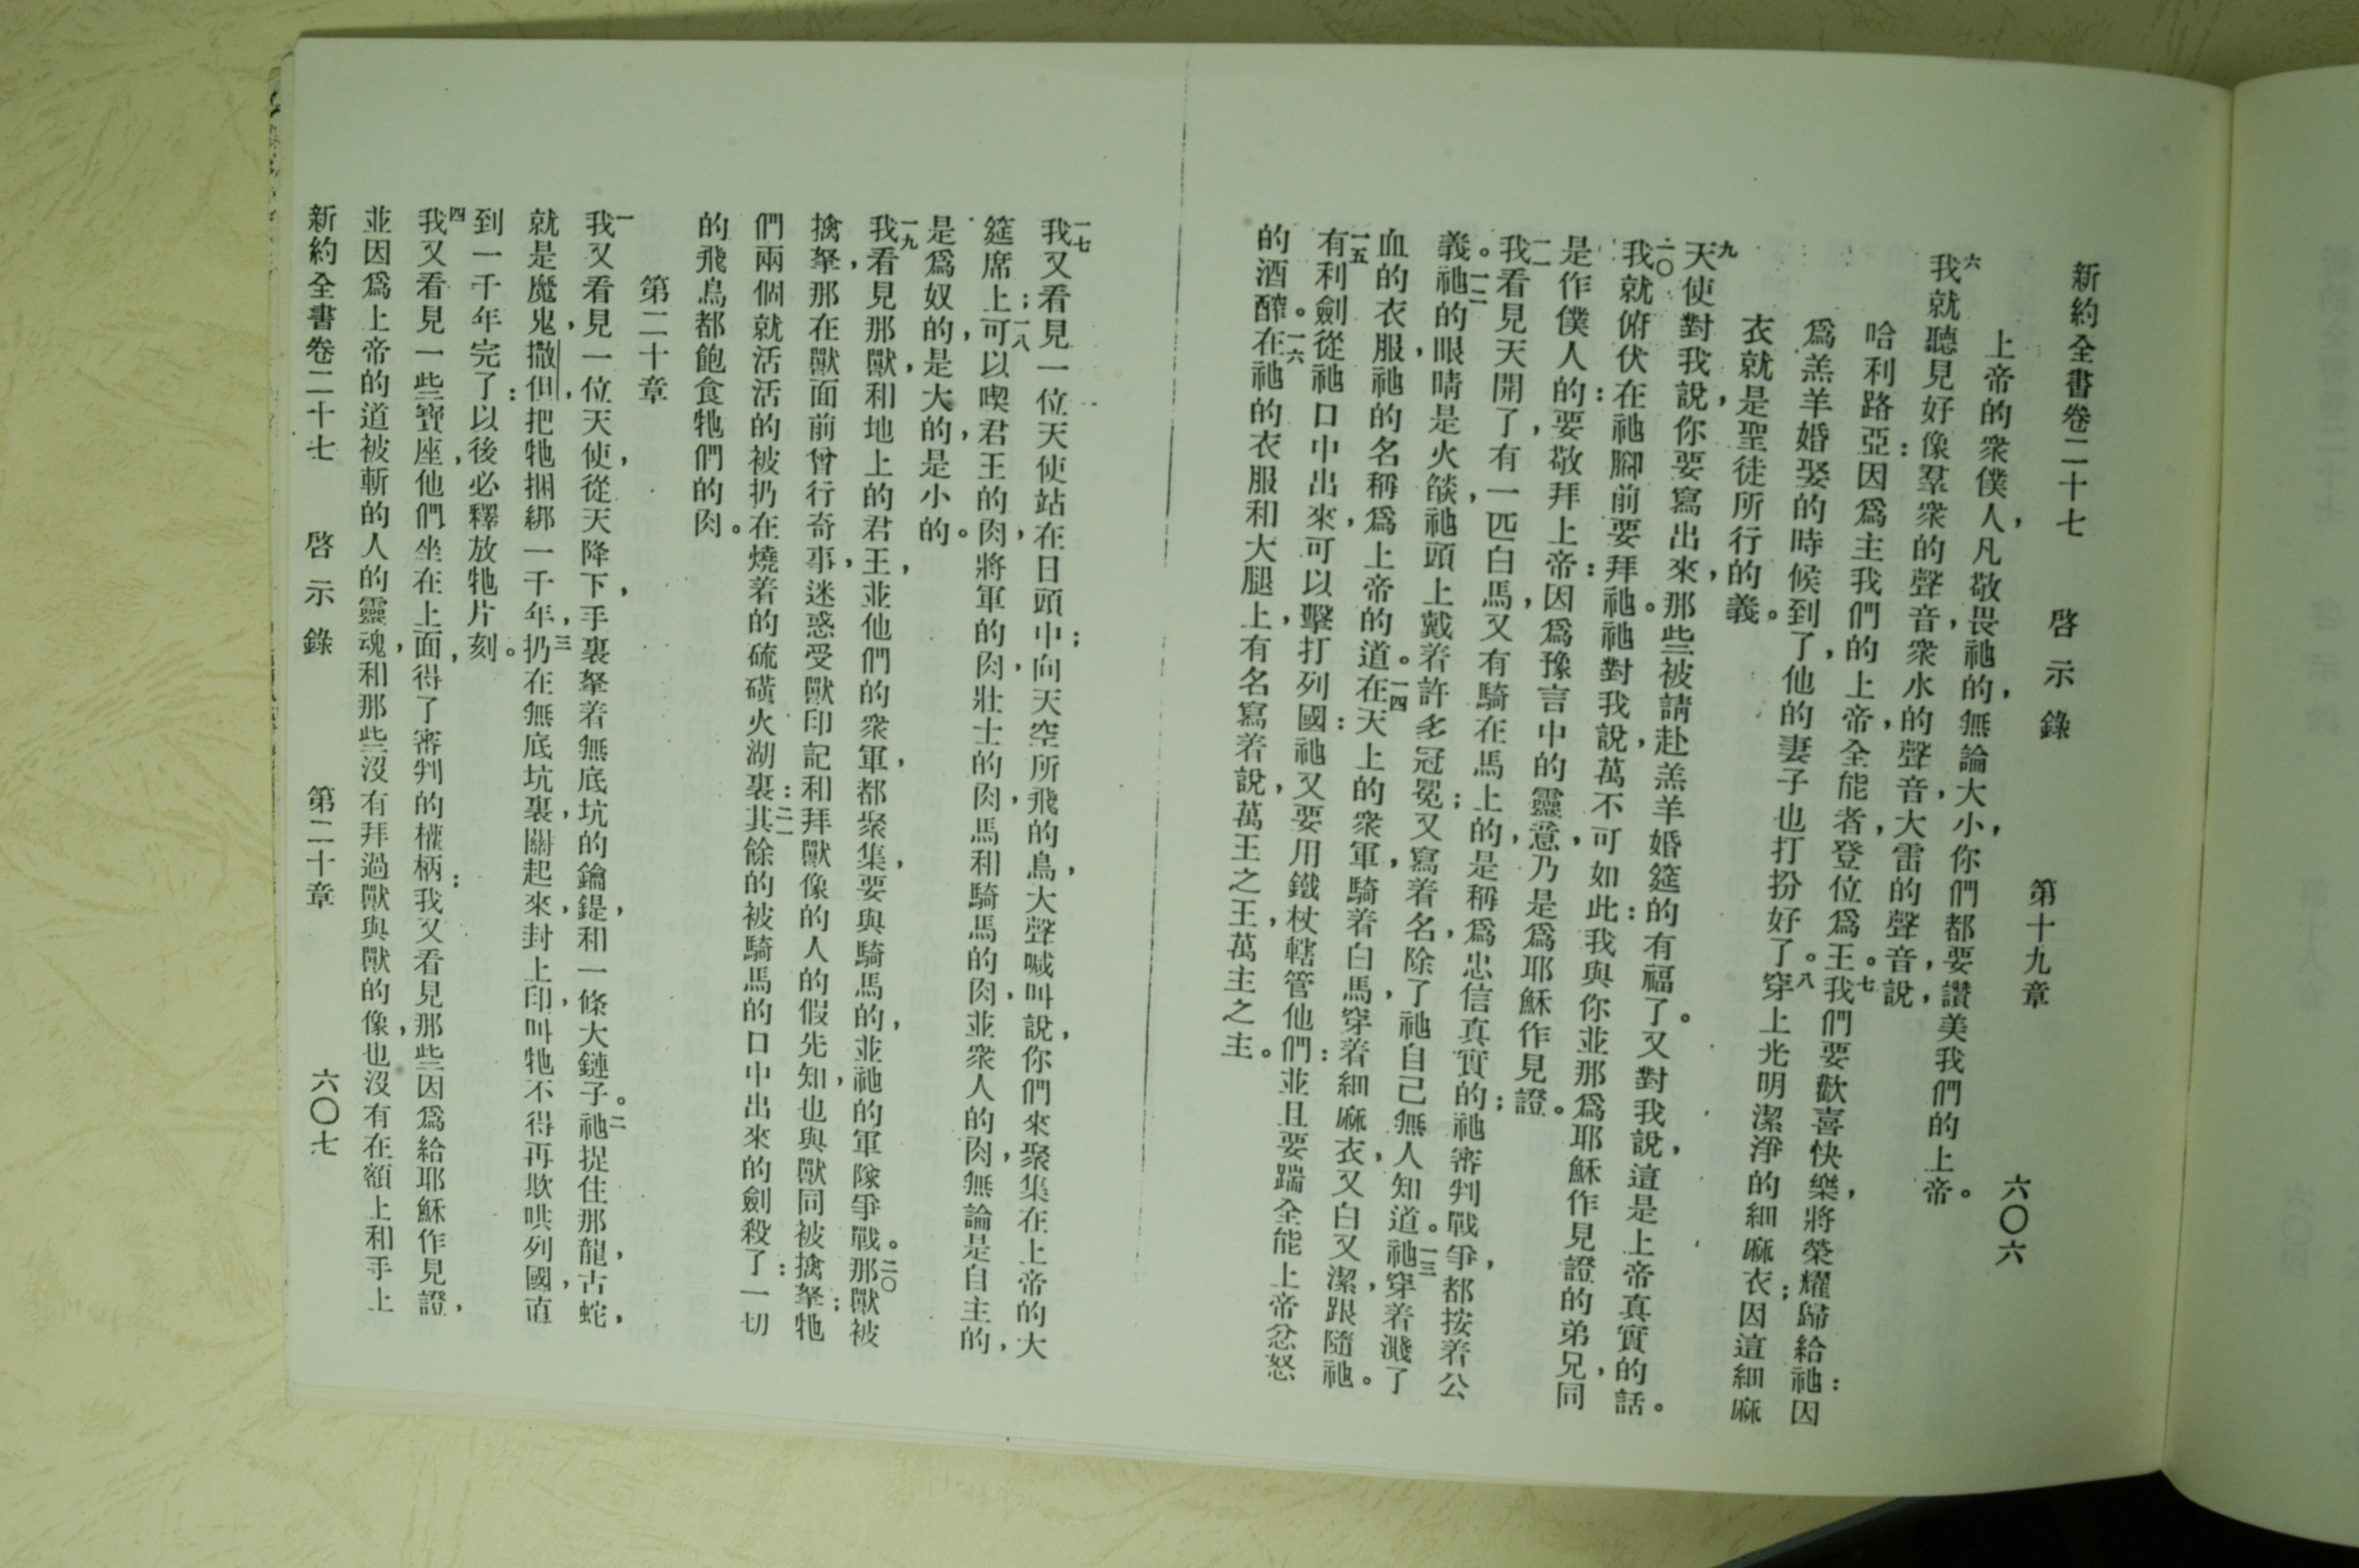 新約全書卷二十七 啓示錄 第十九章 六〇六
上帝的衆僕人，凡敬畏祂的，無論大小，你們都要讚美我們的上帝。
六我就聽見好像羣衆的聲音，衆水的聲音，大雷的聲音，說，
哈利路亞：因爲主我們的上帝，全能者，登位爲王。七我們要歡喜快樂，將榮耀歸給祂：因
爲羔羊婚娶的時候到了，他的妻子也打扮好了。八穿上光明潔淨的細麻衣；因這細麻
衣就是聖徒所行的義。
九天使對我說，你要寫出來，那些被請赴羔羊婚筵的有福了。又對我說，這是上帝真實的話。
一〇我就俯伏在祂腳前要拜祂。祂對我說，萬不可如此：我與你並那爲耶穌作見證的弟兄，同
是作僕人的：要敬拜上帝：因爲豫言中的靈意，乃是爲耶穌作見證。
一一我看見天開了，有一匹白馬，又有騎在馬上的，是稱爲忠信真實的；祂審判戰爭，都按着公
義。一二祂的眼睛是火燄，祂頭上戴着許多冠冕；又寫着名，除了祂自己無人知道。一三祂穿着濺了
血的衣服，祂的名稱爲上帝的道。一四在天上的衆軍，騎着白馬，穿着細麻衣，又白又潔，跟隨祂。
一五有利劍從祂口中出來，可以擊打列國：祂又要用鐵杖轄管他們：並且要踹全能上帝忿怒
的酒醡。一六在祂的衣服和大腿上，有名寫着說，萬王之王，萬主之主。
一七我又看見一位天使站在日頭中；向天空所飛的鳥，大聲喊叫說，你們來聚集在上帝的大
筵席上；一八可以喫君王的肉，將軍的肉，壯士的肉，馬和騎馬的肉，並衆人的肉，無論是自主的，
是爲奴的，是大的，是小的。
一九我看見那獸，和地上的君王，並他們的衆軍，都聚集，要與騎馬的，並祂的軍隊爭戰。二〇那獸被
擒拏，那在獸面前曾行奇事，迷惑受獸印記和拜獸像的人的假先知，也與獸同被擒拏；牠
們兩個就活活的被扔在燒着的硫磺火湖裏：二一其餘的被騎馬的口中出來的劍殺了：一切
的飛鳥都飽食牠們的肉。
第二十章
一我又看見一位天使，從天降下，手裏拏着無底坑的鑰鍉，和一條大鏈子。二祂捉住那龍，古蛇，
就是魔鬼，撒但，把牠捆綁一千年，三扔在無底坑裏，關起來，封上印，叫牠不得再欺哄列國，直
到一千年完了：以後必釋放牠片刻。
四我又看見一些寶座，他們坐在上面，得了審判的權柄：我又看見那些因爲給耶穌作見證，
並因爲上帝的道被斬的人的靈魂，和那些沒有拜過獸與獸的像，也沒有在額上和手上
新約全書卷二十七 啓示錄 第二十章 六〇七